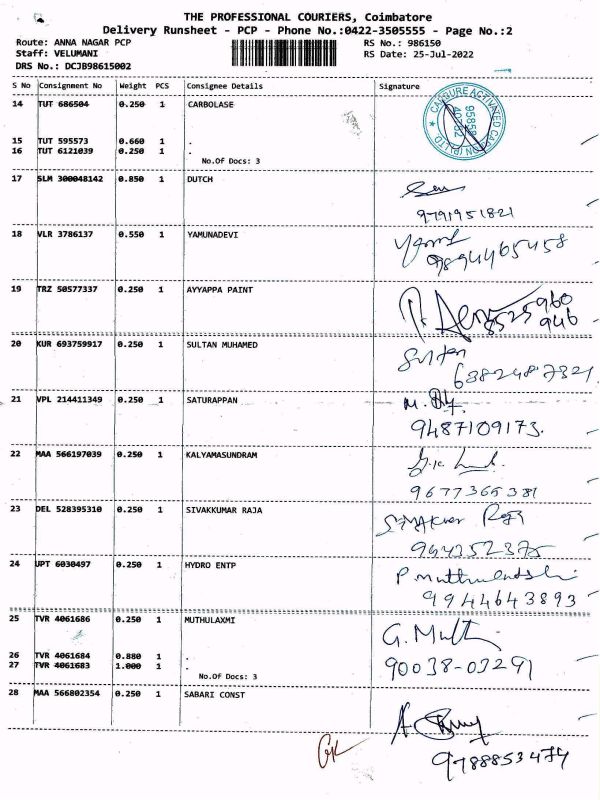 THE PROFESSIONAL COURIERS, Coimbatore
Delivery Runsheet - PCP - Phone No.:0422-3505555 - Page No.:2
Route: ANNA NAGAR PCP RS No.: 986150
Staff: VELUMANI RS Date: 25-Jul-2022
DRS No.: DCJB98615002
S No Consignment No Weight PCS Consignee Details Signature
14 TUT 686504 0.250 1 CARBOLASE
15 TUT 595573 0.660 1 .
16 TUT 6121039 0.250 1 .
No.Of Docs: 3
17 SLM 300048142 0.850 1 DUTCH
9791951821
18 VLR 3786137 0.550 1 YAMUNADEVI
9894465458
19 TRZ 50577337 0.250 1 AYYAPPA PAINT
8525960
946
20 KUR 693759917 0.250 1 SULTAN MUHAMED
Sultan
6382487321
21 VPL 214411349 0.250 1 SATURAPPAN
9487109173.
22 MAA 566197039 0.250 1 KALYAMASUNDRAM
9677365381
23 DEL 528395310 0.250 1 SIVAKKUMAR RAJA
24 UPT 6030497 0.250 1 HYDRO ENTP
9944643893
25 TVR 4061686 0.250 1 MUTHULAXMI
26 TVR 4061684 0.880 1 .
27 TVR 4061683 1.000 1 .
90038-03291
No.Of Docs: 3
28 MAA 566802354 0.250 1 SABARI CONST
9788853474